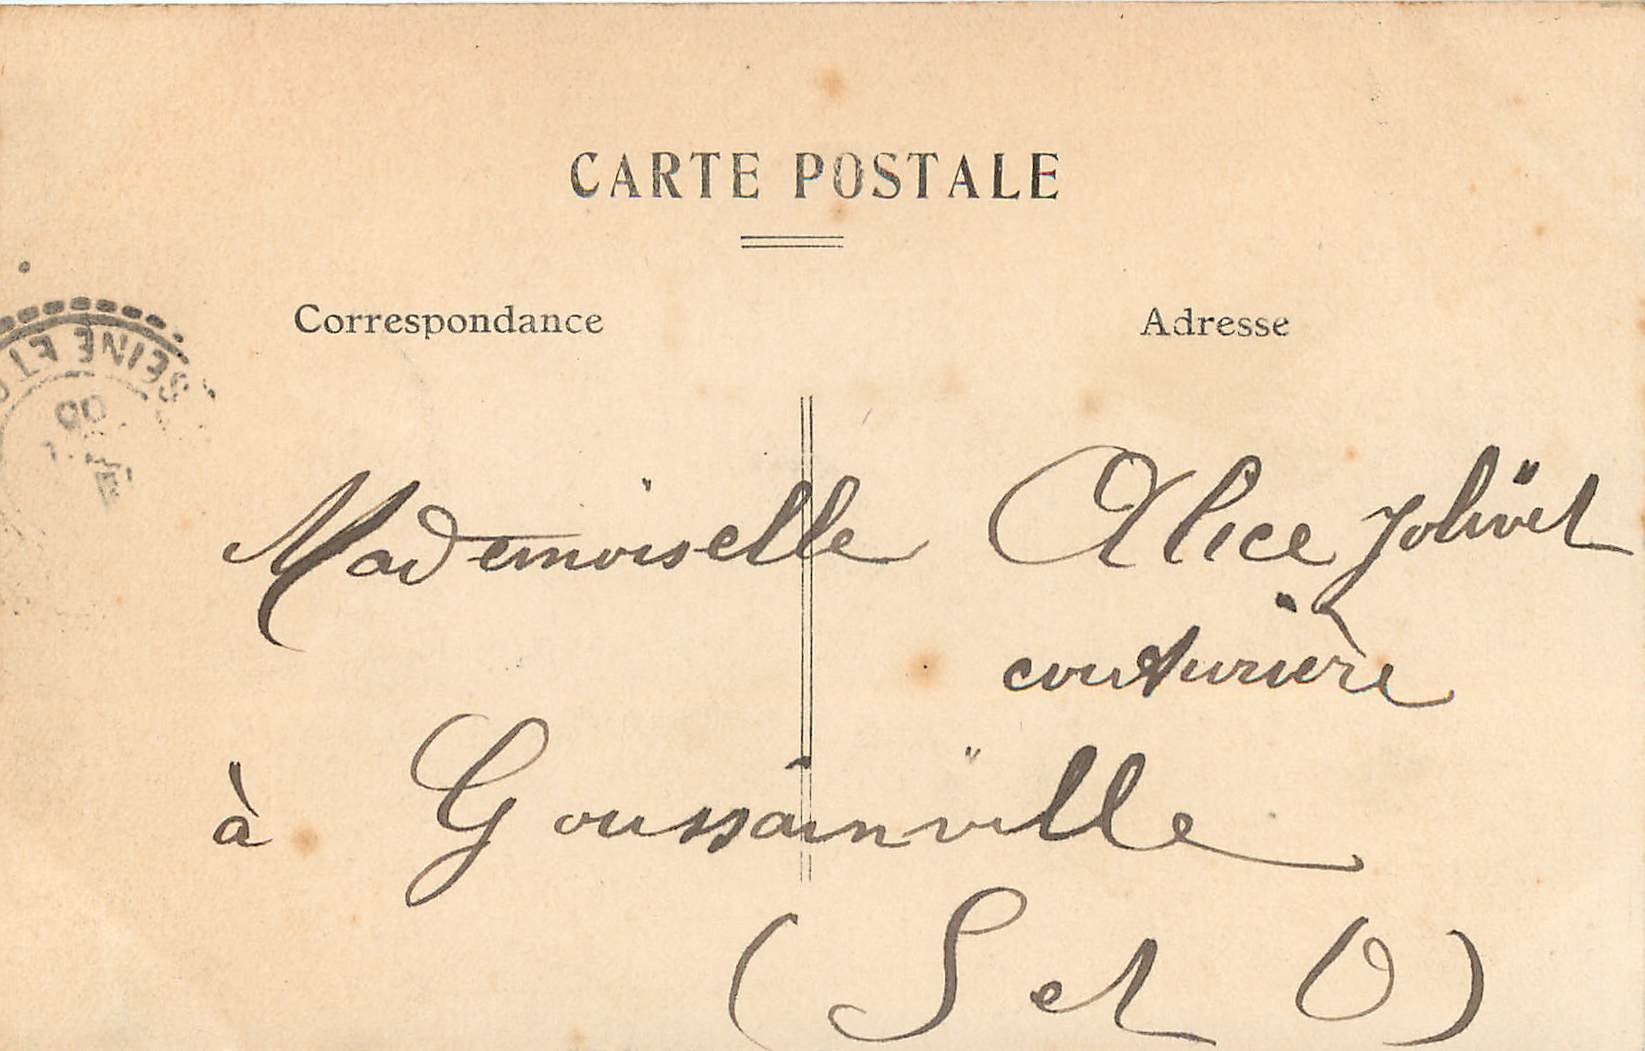 CARTE POSTALE
Correspondance
Adresse
SEINE ET O
Mademoiselle Alice Jolivet
couturière
à Goussainville
(S et O)